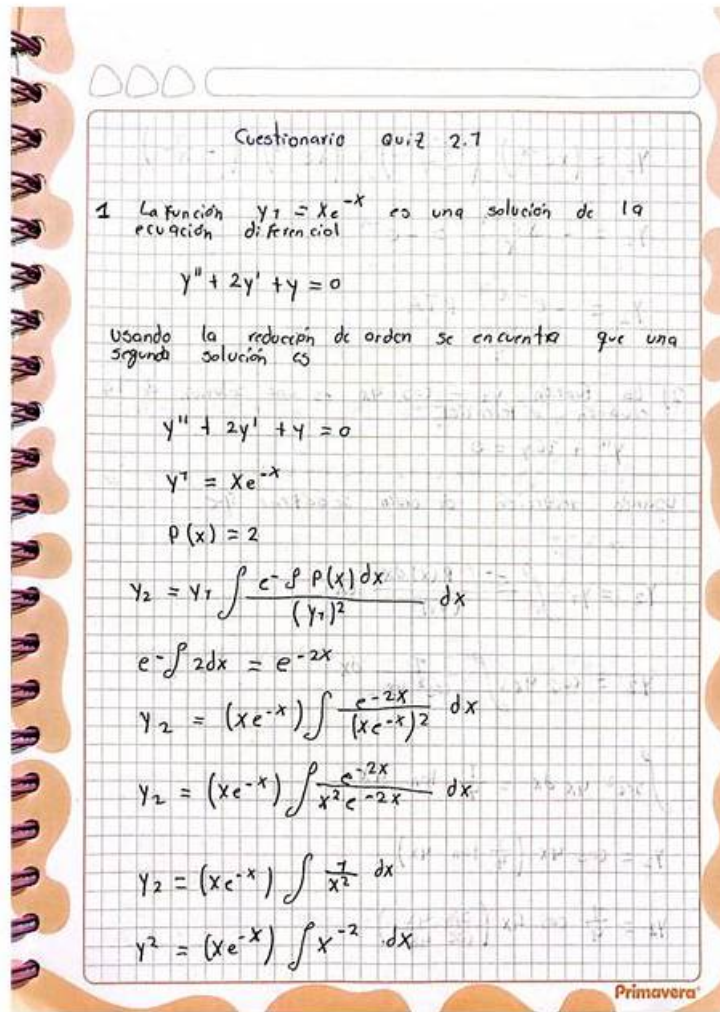 Cuestionario Quiz 2.1
1 La función y₁ = xe^-x es una solución de la
ecuación diferencial
y'' + 2y' + y = 0
usando la reducción de orden se encuentra que una
segunda solución es
y'' + 2y' + y = 0
y¹ = xe^-x
p(x) = 2
y₂ = y₁ ∫ e^-∫ P(x) dx / (y₁)² dx
e^-∫ 2dx = e^-2x
y₂ = (xe^-x) ∫ e^-2x / (xe^-x)² dx
y₂ = (xe^-x) ∫ e^-2x / x² e^-2x dx
y₂ = (xe^-x) ∫ 1/x² dx
y² = (xe^-x) ∫ x^-2 dx
Primavera